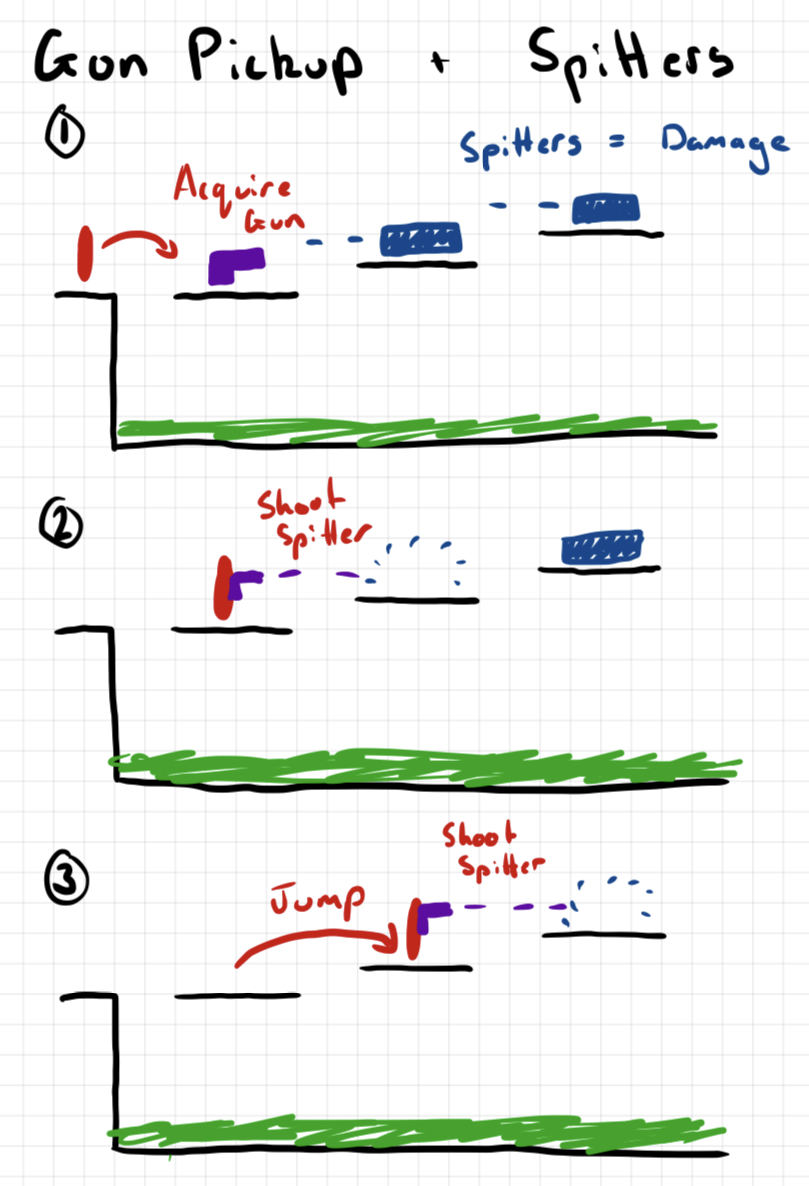 Gun Pickup + Spitters
1
Spitters = Damage
Acquire
Gun
2
Shoot
Spitter
3
Shoot
Spitter
Jump